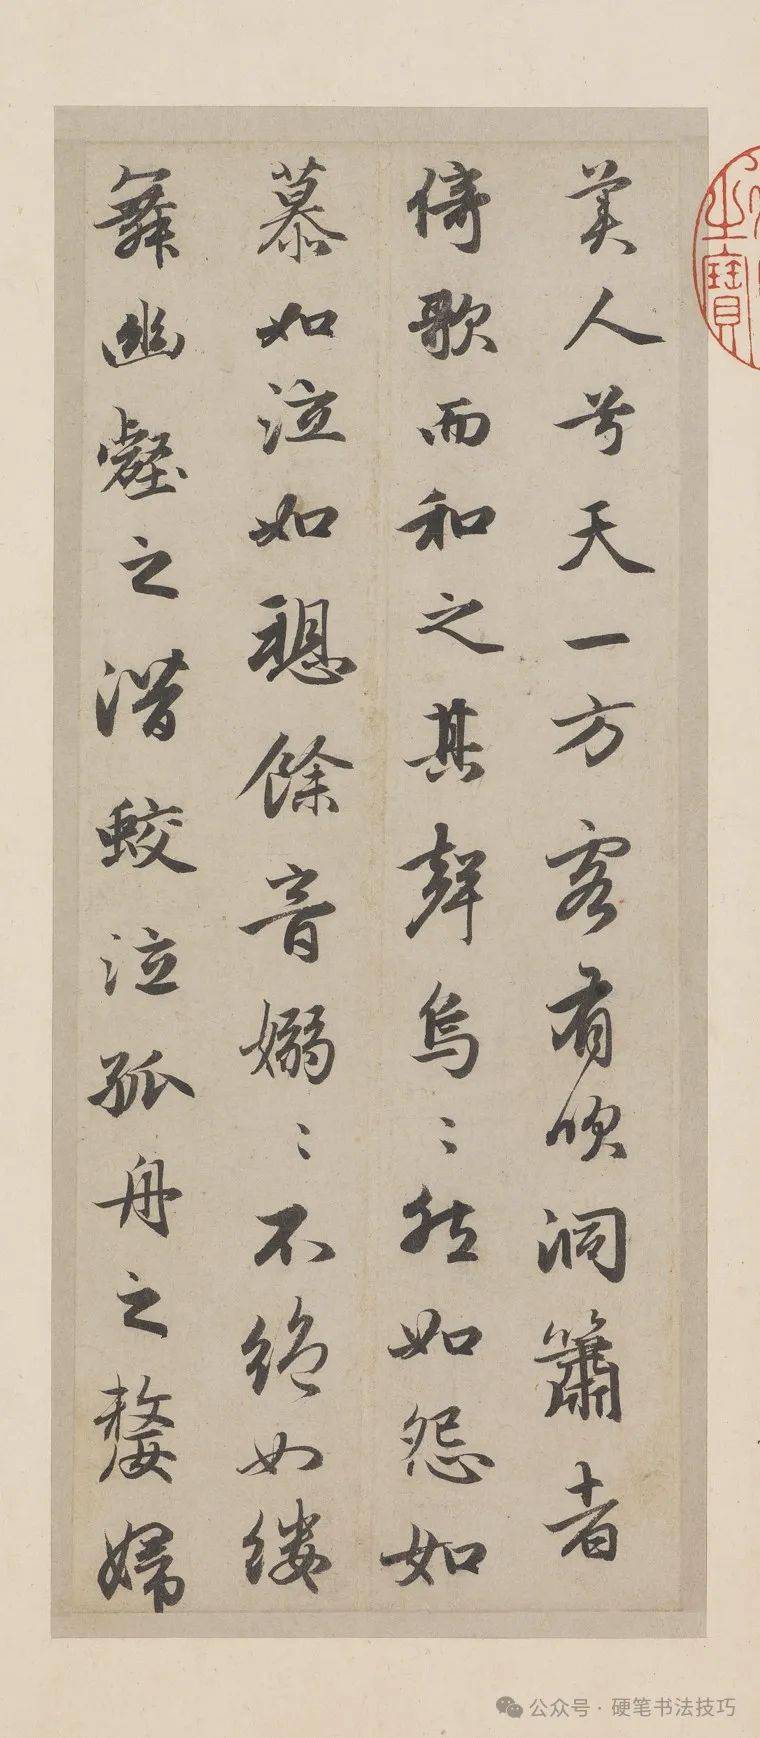 美人兮天一方客有吹洞簫者
倚歌而和之其聲烏〻然如怨如
慕如泣如愬餘音嫋〻不絕如縷
舞幽壑之潛蛟泣孤舟之嫠婦
之寶
公众号 · 硬笔书法技巧